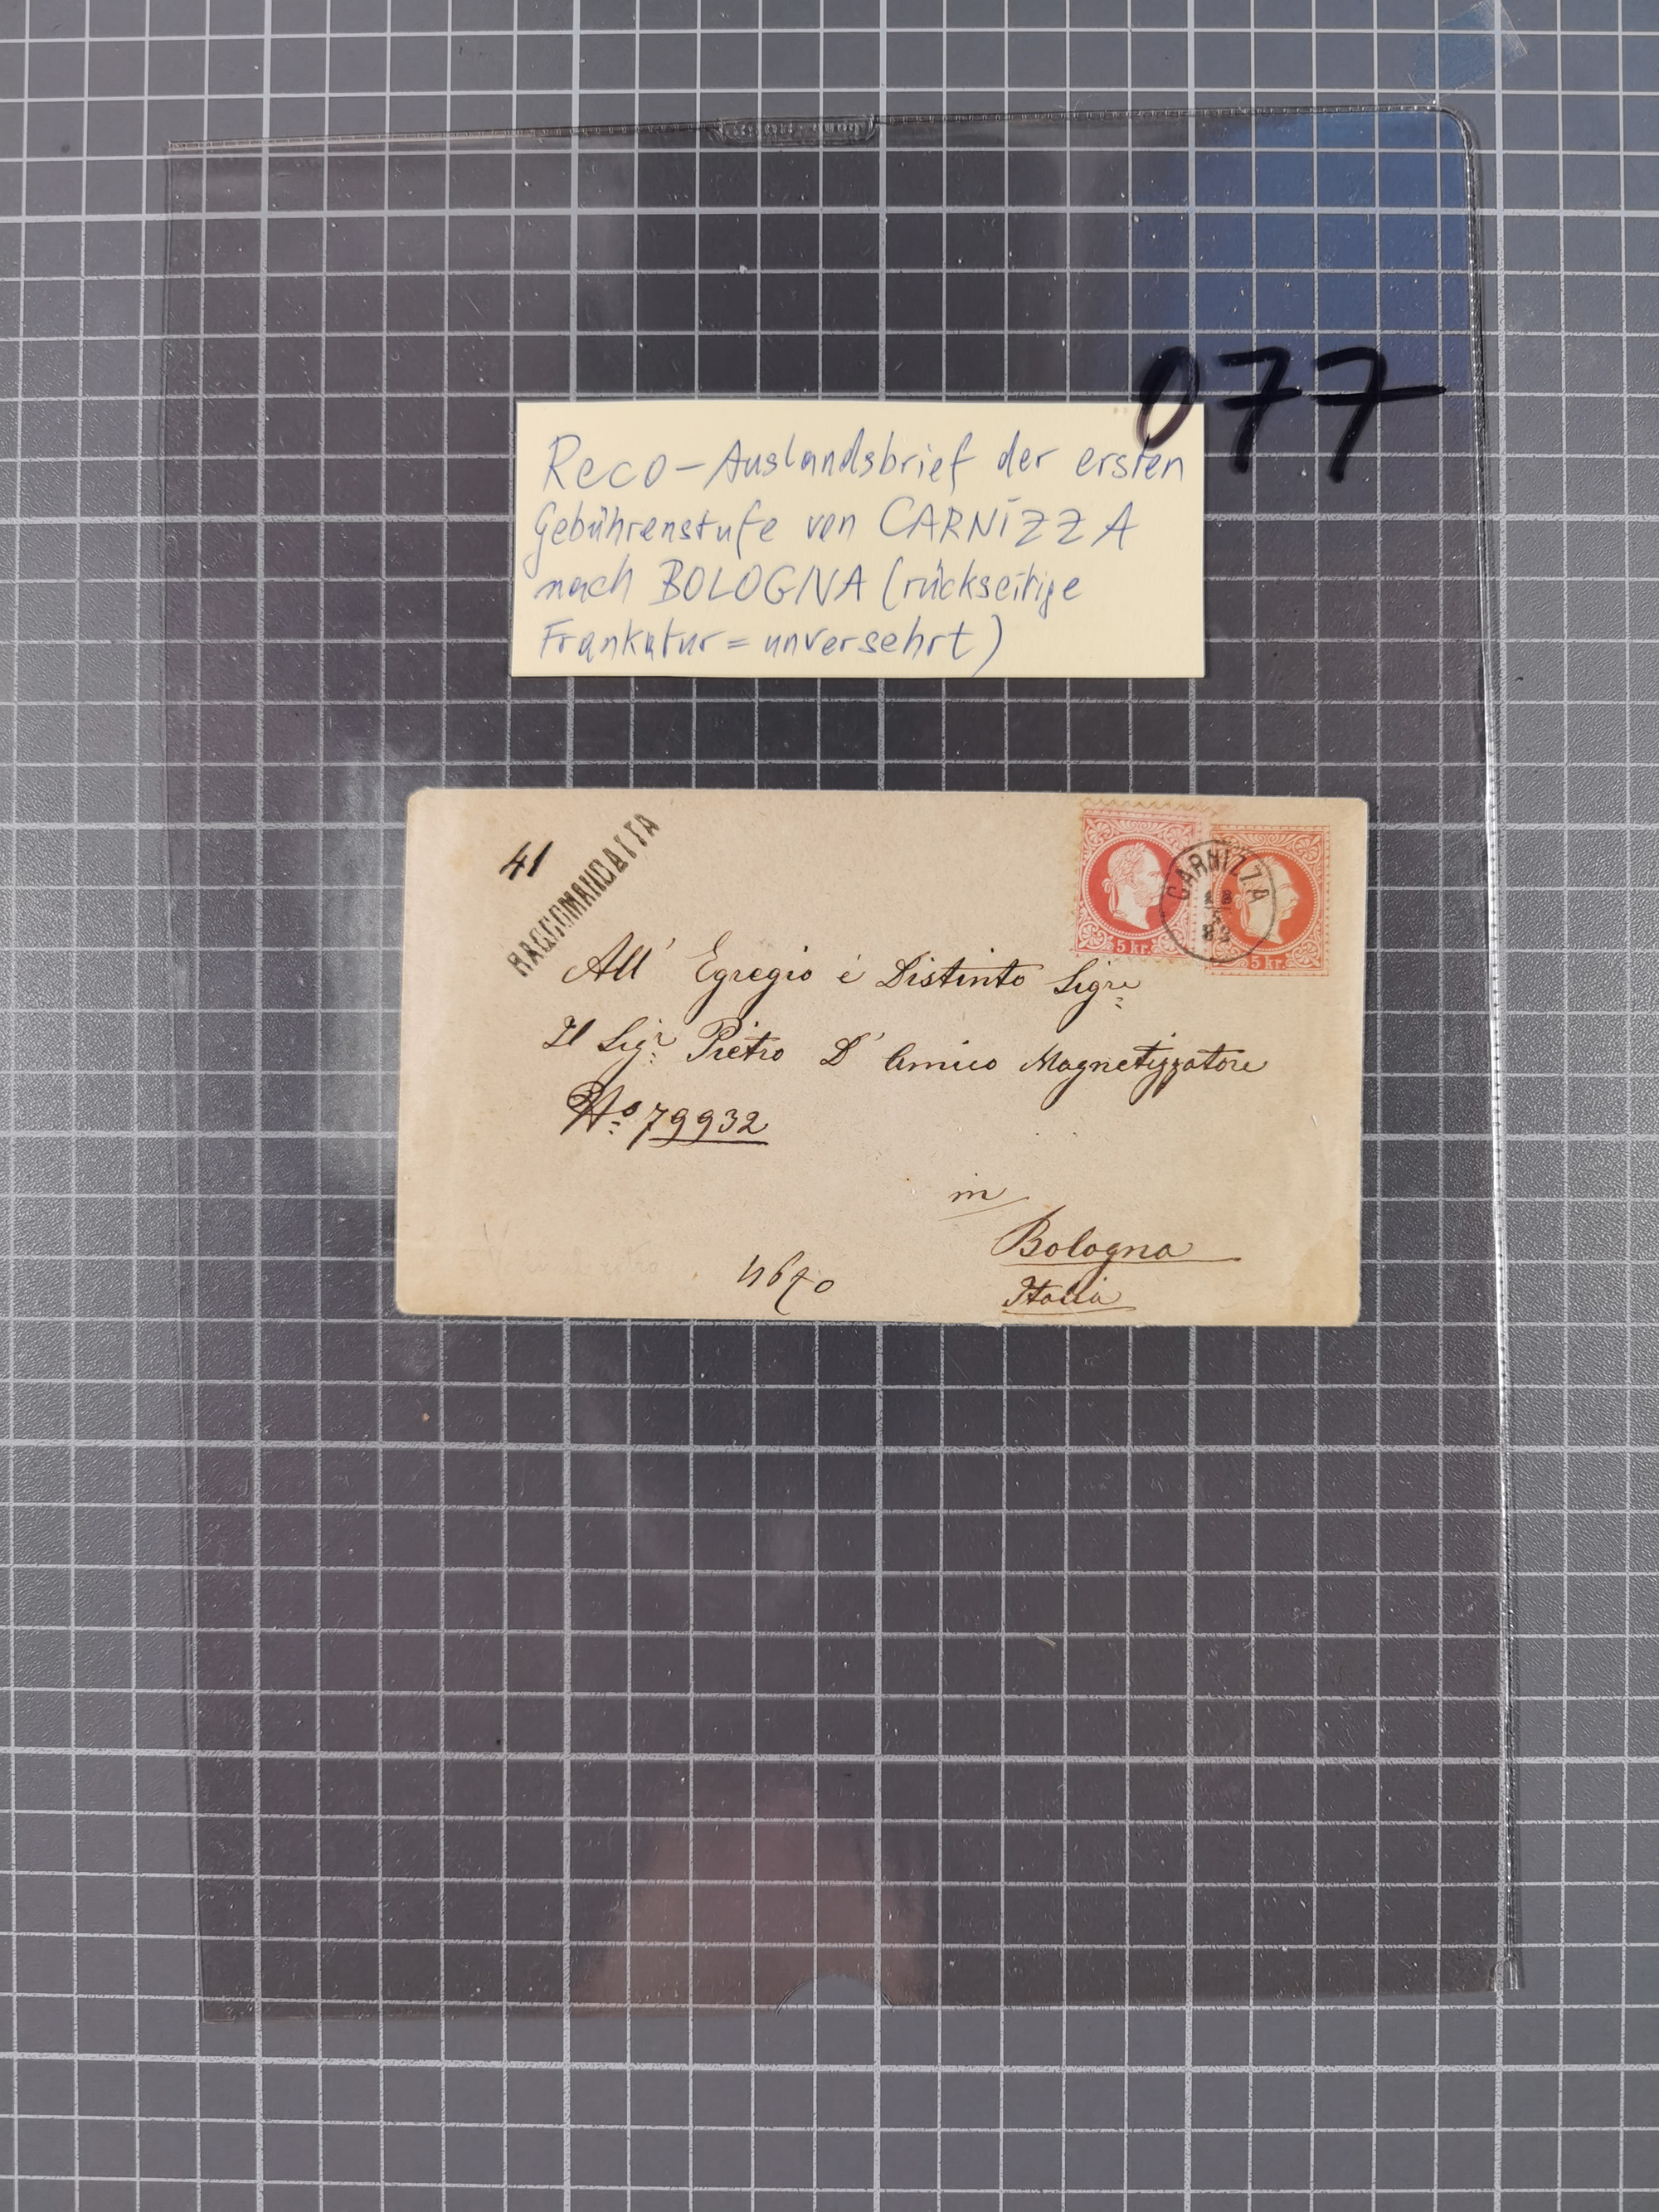 077
Reco-Auslandsbrief der ersten
Gebührenstufe von CARNIZZA
nach BOLOGNA (rückseitige
Frankatur = unversehrt)
41
RACCOMANDATTA
5 kr.
5 kr.
CARNIZZA
All' Egregio é Distinto Sigre
Il Sigr. Pietro D'Amico Magnetizzatore
No 79932
in
Bologna
Italia